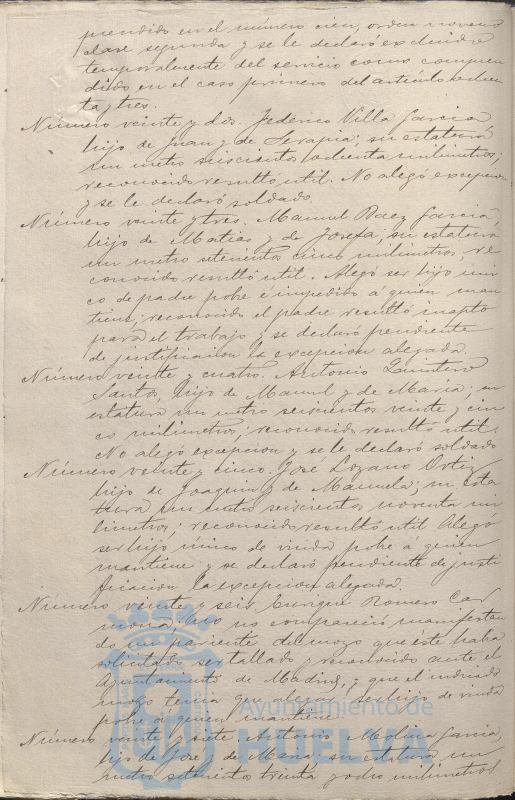 prendido en el número cien, orden noveno
clase segunda y se le declaró excluido
temporalmente del servicio como compren
dido en el caso primero del artículo ochen
ta y tres.
Número veinte y dos. Federico Villa Garcia
hijo de Juan y de Serapia; su estatura
un metro seiscientos ochenta milimetros;
reconocido resultó útil. No alegó excepcion
y se le declaró soldado
Número veinte y tres. Manuel Baez Garcia,
hijo de Matias y de Josefa, su estatura
un metro setecientos cinco milimetros, re
conocido resultó util. Alegó ser hijo úni
co de padre pobre é impedido á quien man
tiene; reconocido el padre resultó inepto
para el trabajo y se declaró pendiente
de justificacion la excepcion alegada.
Número veinte y cuatro. Antonio Quintero
Santos, hijo de Manuel y de Maria; su
estatura un metro seiscientos veinte y cin
co milimetros; reconocido resultó util.
No alegó excepcion y se le declaró soldado
Número veinte y cinco. José Lozano Ortiz
hijo de Joaquin y de Manuela; su esta
tura un metro seiscientos noventa mi
limetros; reconocido resultó util. Alegó
ser hijo único de viuda pobre á quien
mantiene y se declaró pendiente de justi
ficacion la excepcion alegada.
Número veinte y seis. Enrique Romero Car
mona; no compareció manifestan
do un pariente del mozo que éste habia
solicitado ser tallado y reconocido ante el
Ayuntamiento de Madrid, y que el indicado
mozo tenia que alegar ser hijo de viuda
pobre á quien mantiene
Número veinte y siete Antonio Molina Garcia,
hijo de José y de Maria su estatura un
metro setecientos treinta y ocho milimetros
Ayuntamiento de
HUELVA